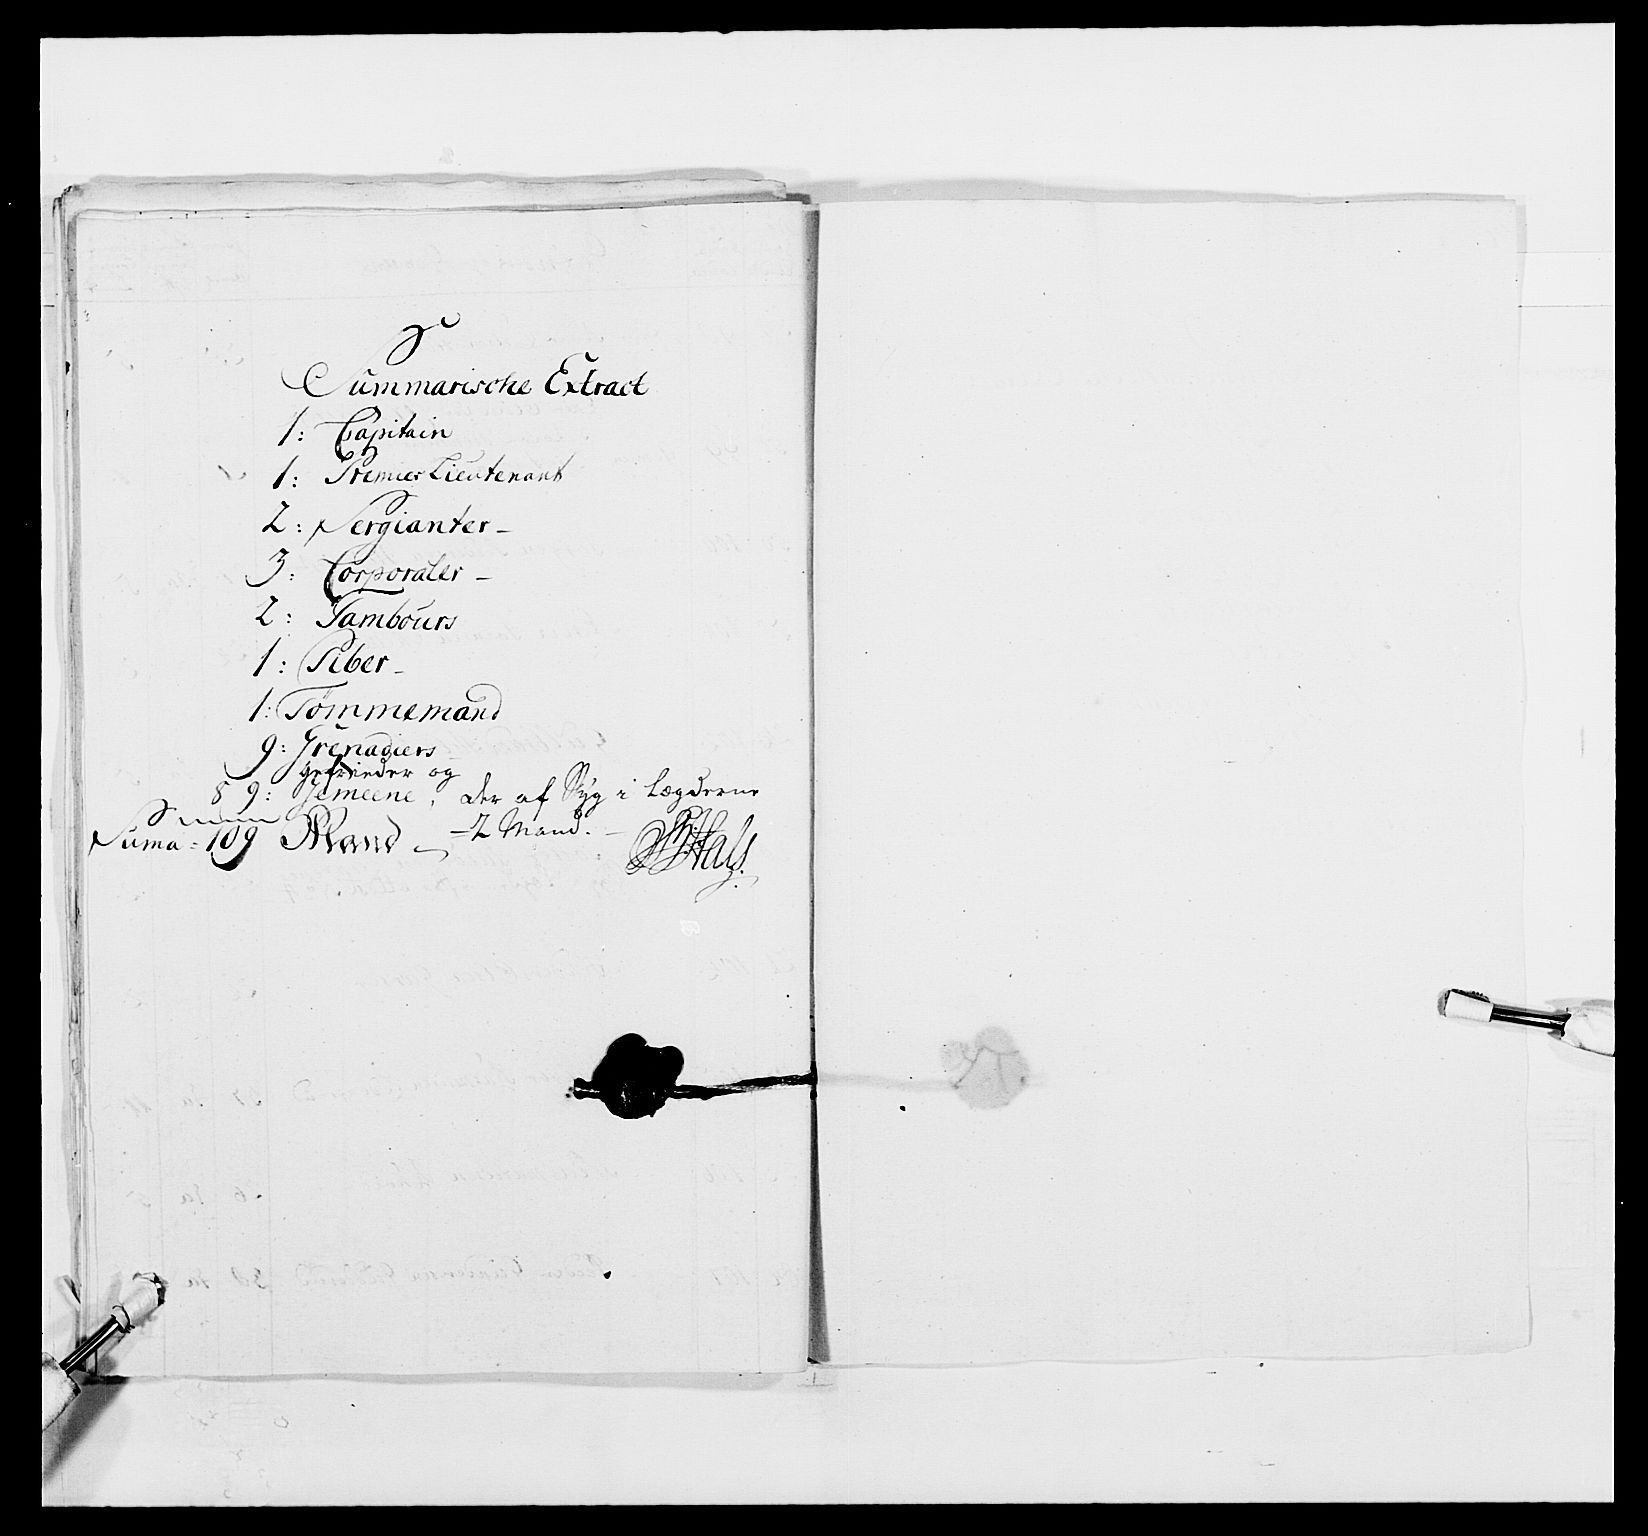 Summarische Extract
1: Capitain
1: Premier Lieutenant
2: Sergianter -
3: Corporaler -
2: Tambours
1: Piber -
1: Tømmemand
9: Grenadiers
gefrieder og
89: Gemeene, der af Syg i Lægderne
Suma = 109 Mand - = 2 Mand. -
Hals.